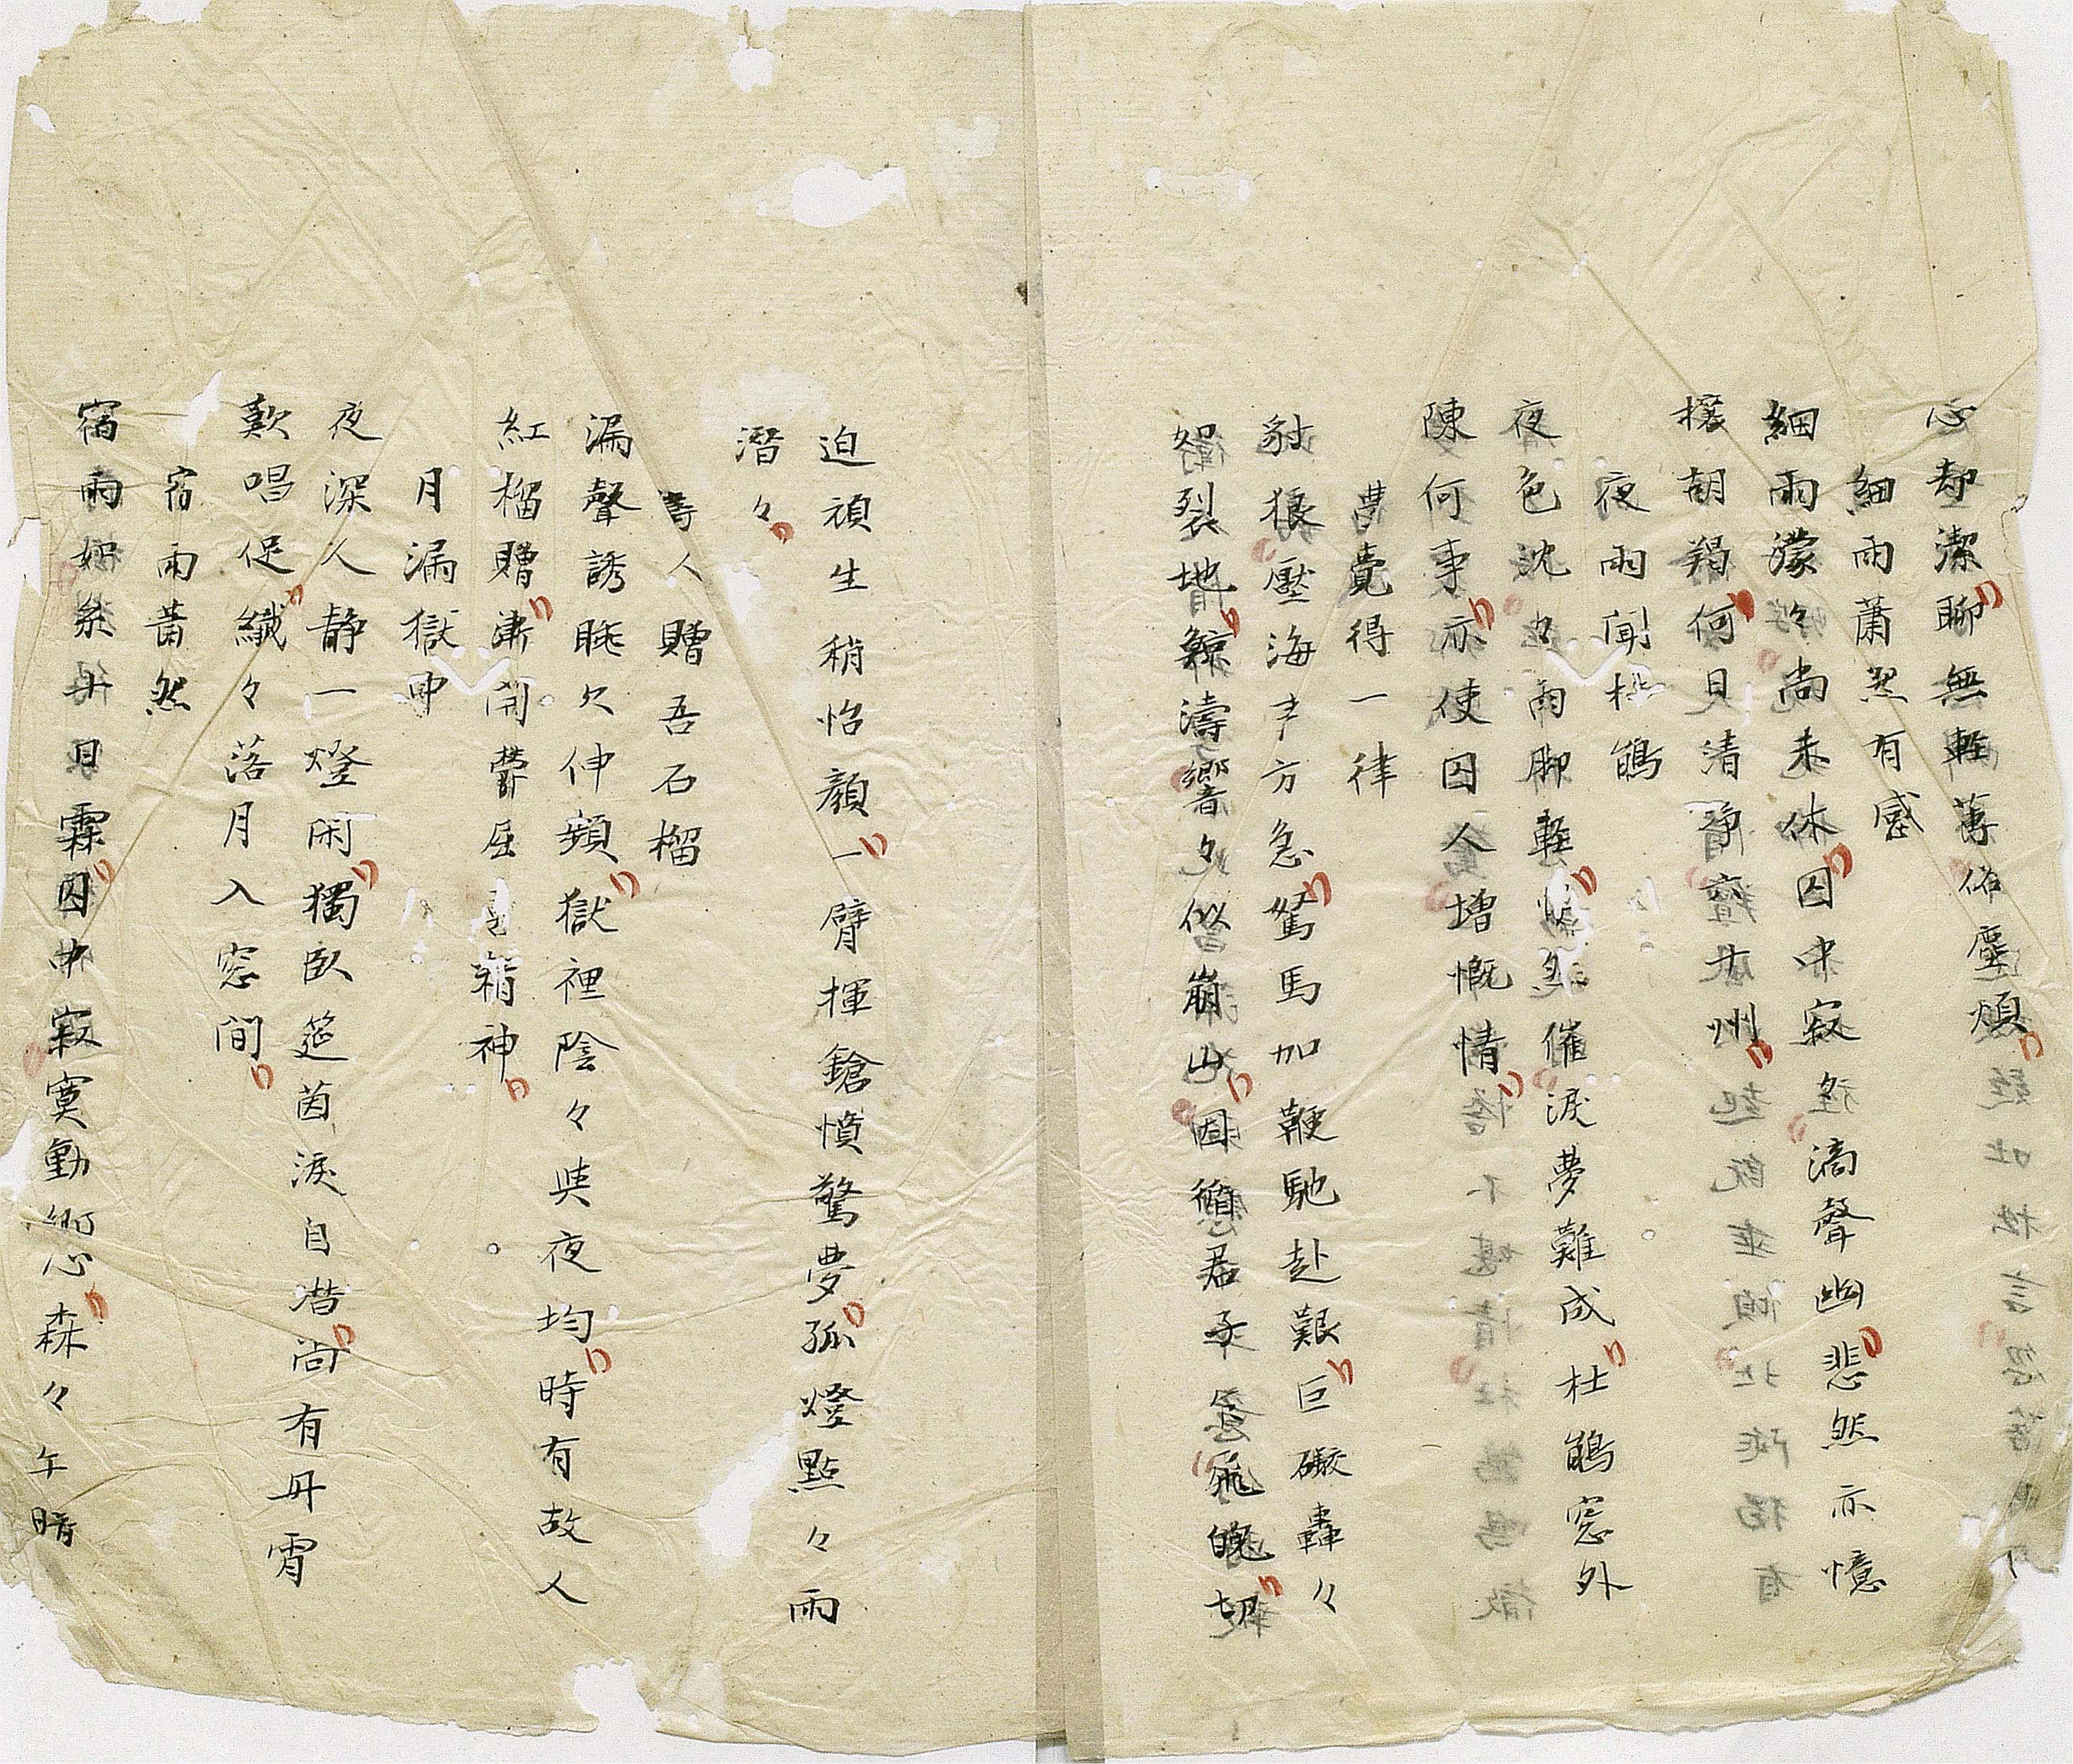 心却潔聊無軽薄俗塵煩
細雨蕭然有感
細雨濛々尚未休囚中寂
滴聲幽悲然亦憶
胡羯何日清浄
州
夜雨聞杜鵑
夜色沈々雨脚軽
催涙夢難成杜鵑窓外
陳何事亦使囚人増慨情
夢覺得一律
豺狼壓海声方急駑馬加鞭馳赴艱巨礮轟々
裂地鯨濤響々似崩山因循君子
飛魄切
迫頑生稍怡顔一臂揮鎗憤驚夢孤燈點々雨
潛々
人贈吾石榴
漏聲誘眠欠伸頻獄裡陰々與夜均時有故人
紅榴贈漸開欝屈
精神
月漏獄中
夜深人静一燈閑獨臥筵茵涙自潸尚有丹霄
歎唱促織々落月入窓間
宿雨蕭然
宿雨如糸十日霖囚中寂寞動
心森々午暗